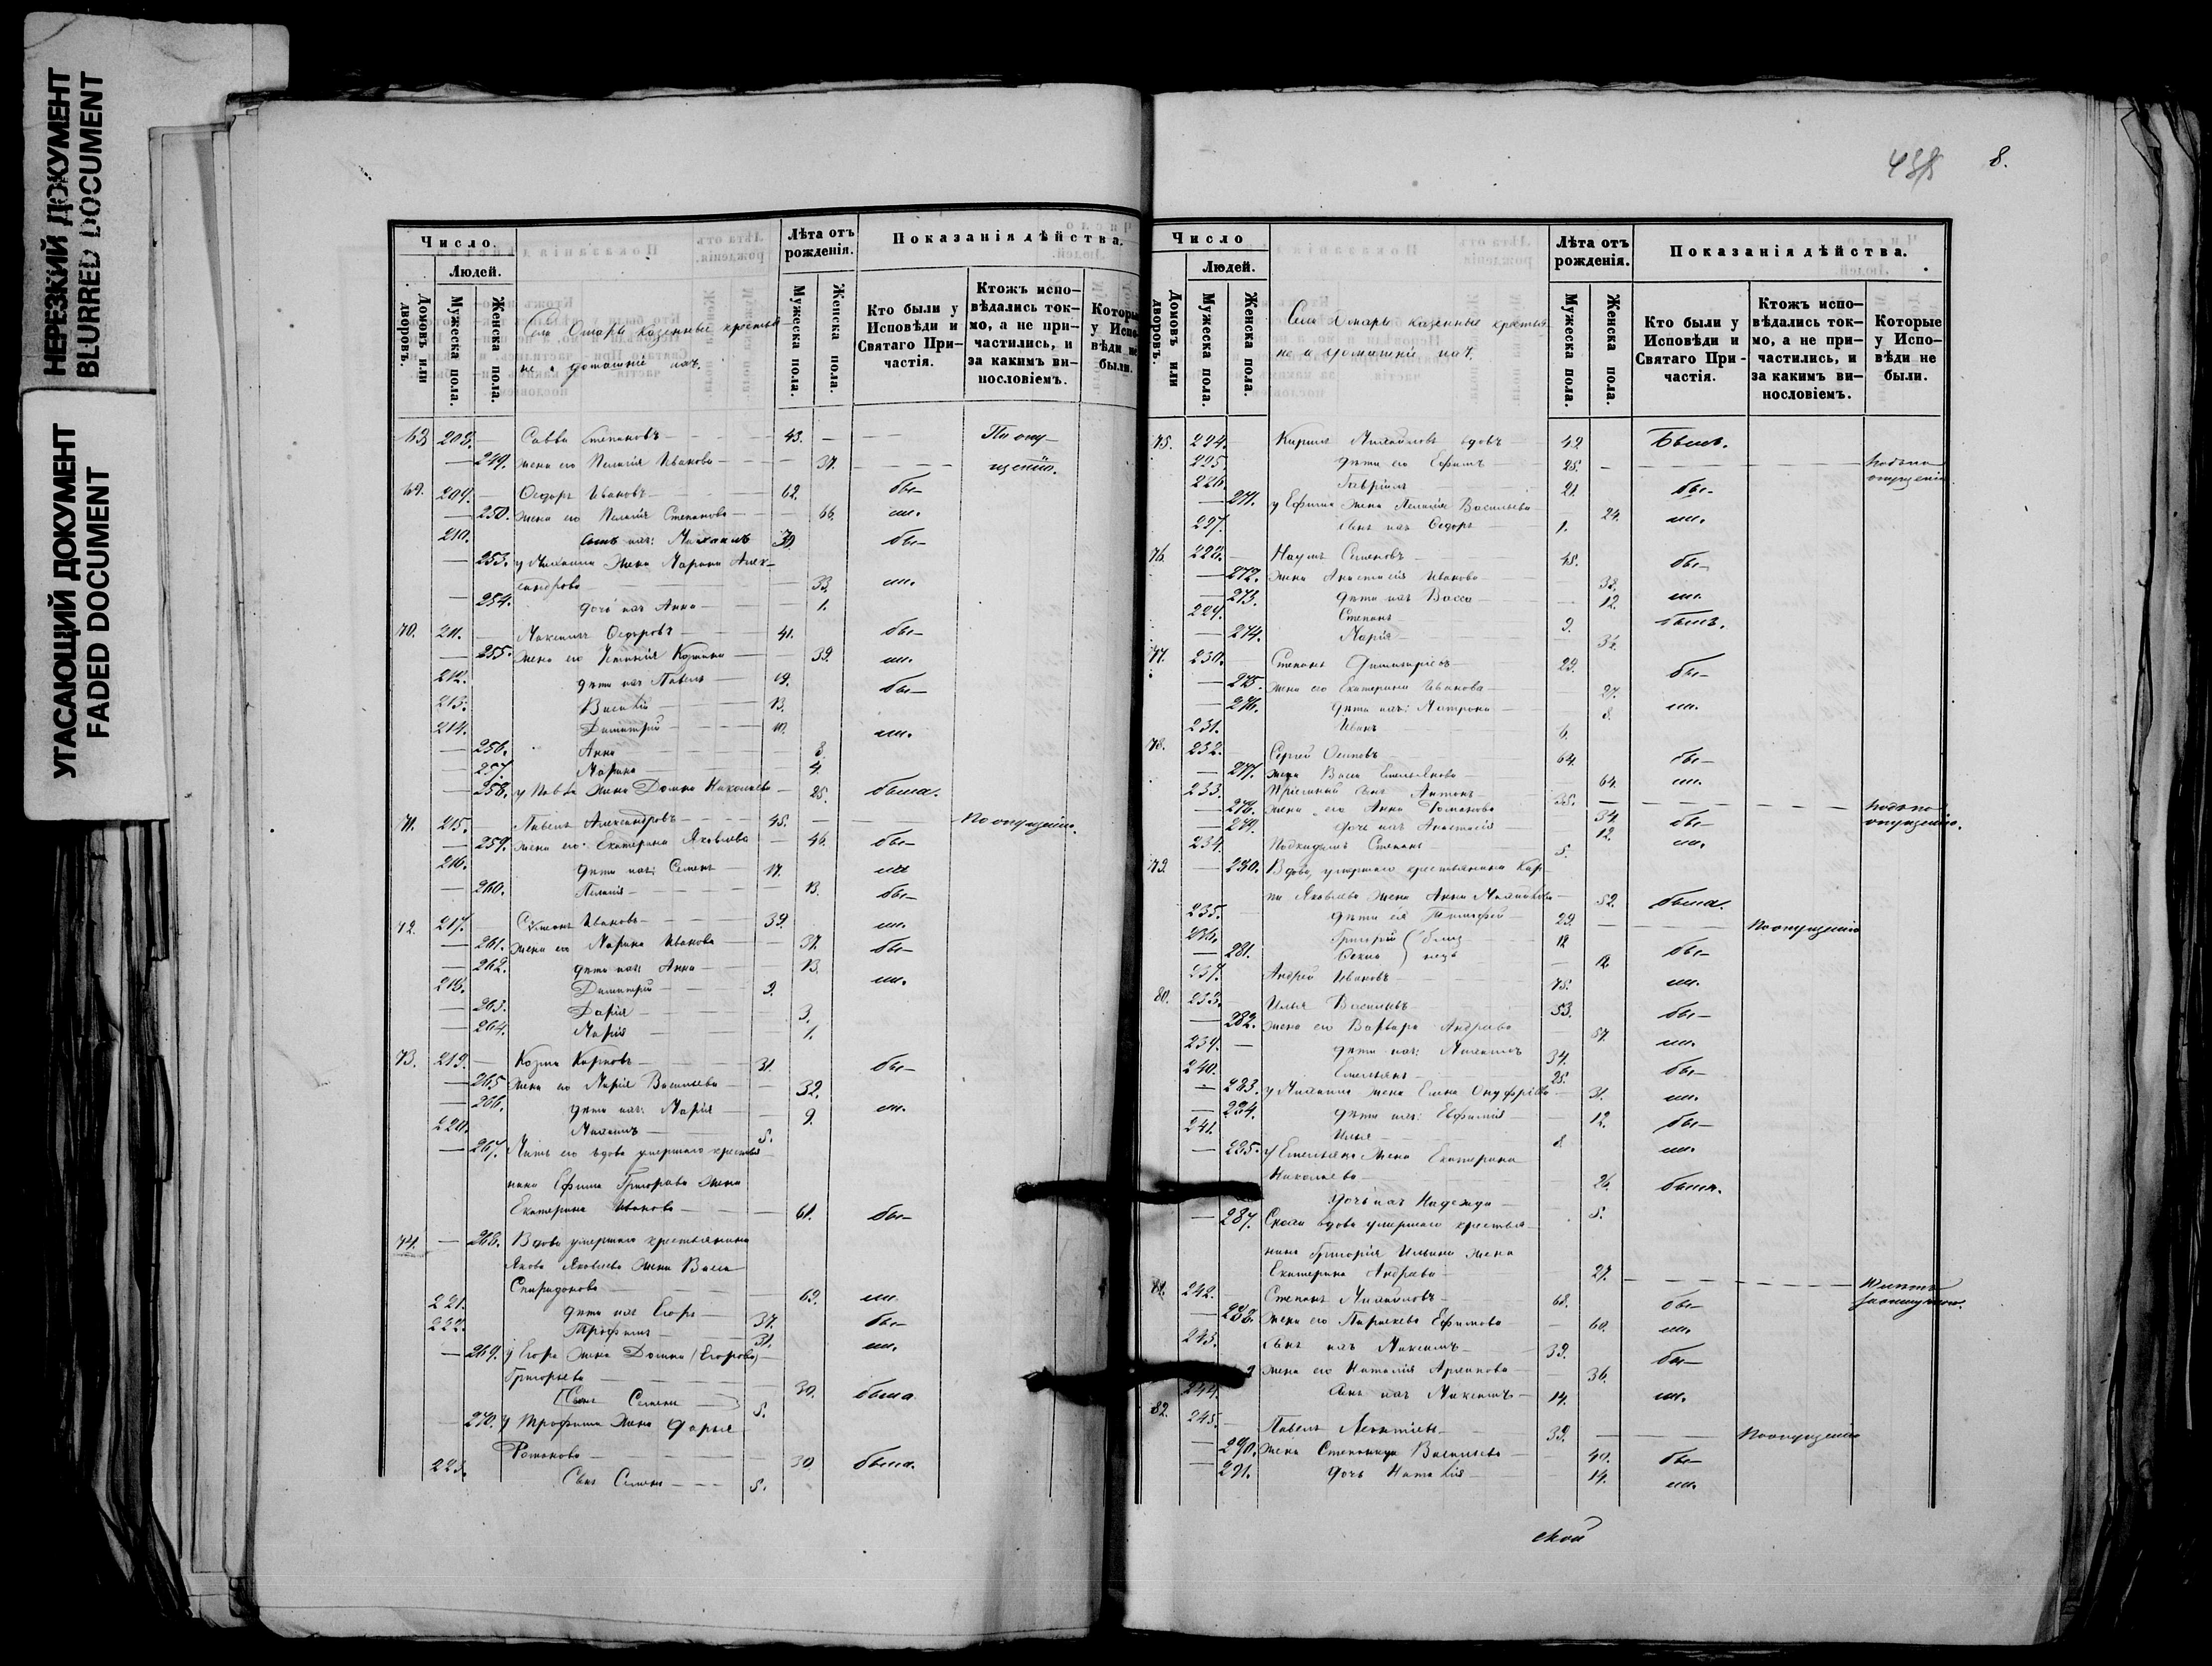 НЕРЕЗКИЙ ДОКУМЕНТ
BLURRED DOCUMENT
УГАСАЮЩИЙ ДОКУМЕНТ
FADED DOCUMENT
Число.
Людей.
Домовъ или дворовъ.
Мужеска пола.
Женска пола.
Лѣта отъ рожденія.
Мужеска пола.
Женска пола.
Показанія дѣйства.
Кто были у Исповѣди и Святаго При-частія.
Ктожъ испо-вѣдались ток-мо, а не при-частились, и за какимъ ви-нословіемъ.
Которые у Испо-вѣди не были.
казенные крестья-
не и домашніе ихъ.
208. Савва Степановъ 43. По опу-
249. жена его Пелагія Иванова 37. щенію.
69. 209. Ѳедоръ Ивановъ 62. бы-
250. жена его Пелагія Степанова 66. ли.
210. сынъ ихъ: Михаилъ 39. бы-
253. у Михаила жена Марина Алек-
сандрова 33. ли.
254. дочь ихъ Анна 1.
70. 211. Максимъ Ѳедоровъ 41. бы-
255. жена его Устинія Козмина 39. ли.
212. дѣти ихъ Павелъ 19. бы-
213. Василій 13.
214. Димитрій 10. ли.
256. Анна 8.
257. Марина 4.
258. у Павла жена Домна Николаева 25. была.
71. 215. Павелъ Александровъ 45. По опущенію.
259. жена его Екатерина Яковлева 46. бы-
216. дѣти ихъ: Семенъ 17. ли
260. Пелагія 13. бы-
72. 217. Семенъ Ивановъ 39. ли.
261. жена его Марина Иванова 37. бы-
262. дѣти ихъ Анна 13. ли.
218. Димитрій 9.
263. Дарія 3.
264. Марія 1.
73. 219. Козма Карповъ 31. бы-
265 жена его Марія Васильева 32.
266. дѣти ихъ: Марія 9. ли.
220. Михаилъ 5.
267. Мать его вдова умершаго крестья-
нина Ефима Григорьева жена
Екатерина Иванова 61. бы-
74. 268. Вдова умершаго крестьянина
Якова Яковлева жена Васса
Спиридонова 69. ли.
221. дѣти ихъ Егоръ 37. бы-
222. Трофимъ 31. ли.
269. у Егора жена Домна (Егорова)
Григорьева 30. была
Сынъ Семенъ 5.
270. у Трофима жена Дарья
Романова 30. была.
223. Сынъ Семенъ 5.
8.
Число
Людей.
Домовъ или дворовъ.
Мужеска пола.
Женска пола.
Лѣта отъ рожденія.
Мужеска пола.
Женска пола.
Показанія дѣйства.
Кто были у Исповѣди и Святаго При-частія.
Ктожъ испо-вѣдались ток-мо, а не при-частились, и за какимъ ви-нословіемъ.
Которые у Испо-вѣди не были.
казенные крестья-
не и домашніе ихъ.
75. 224. Кирилъ Михайловъ вдовъ 42 Былъ.
225. дѣти его Ефимъ 25.
226. Гавріилъ 21 бы-
271. у Ефима жена Пелагія Васильева 24. ли.
227. сынъ ихъ Ѳедоръ 1.
76. 228. Наумъ Семеновъ 45. бы-
272. жена Анастасія Иванова 38.
273. дѣти ихъ Васса 12. ли.
229. Степанъ 9. былъ.
274. Марія
77. 230. Степанъ Димитріевъ 29. бы-
275. жена его Екатерина Иванова 27.
276. дѣти ихъ: Матрона 8. ли.
231. Иванъ 6.
78. 232. Сергей Осиповъ 64. бы-
277. жена Васса Емельянова 64. ли.
233. Пріемный сынъ Антонъ 35.
278. жена его Анна Романова 34. бы-
279. дочь ихъ Анастасія 12. ли.
234. Подкидышъ Степанъ 5.
79. 280. Вдова, умершаго крестьянина Кар-
па Яковлева жена Анна Михайлова 52. была.
235. дѣти ея Тимофей 29. По опущенію
236. Григорій (близ 12 бы-
281. ) нецы 12.
237. Андрей Ивановъ 75. ли.
80. 238. Илья Васильевъ 53. бы-
282. жена его Варвара Андреева 57. ли.
239. дѣти ихъ: Михаилъ 34.
240. Емельянъ 25. бы-
283. у Михаила жена Елена Онуфріева 31. ли.
284. дѣти ихъ: Евфимія 12. бы-
241. Илья 8. ли.
285. у Емельяна жена Екатерина
Николаева 26. была.
дочь ихъ Надежда 5.
287. Сноха вдова умершаго крестья-
нина Григорія Ильина жена
Екатерина Андреева 27.
81. 242. Степанъ Михайловъ 68. бы-
288. жена его Параскева Ефимова 60. ли.
243. сынъ ихъ Максимъ 39. бы-
жена его Наталія 36.
244. сынъ ихъ 14. ли.
82. 245. Павелъ Леонтіевъ 39. По опущенію
290. жена Степанида Васильева 40. бы-
291. дочь Наталія 14. ли.
ской